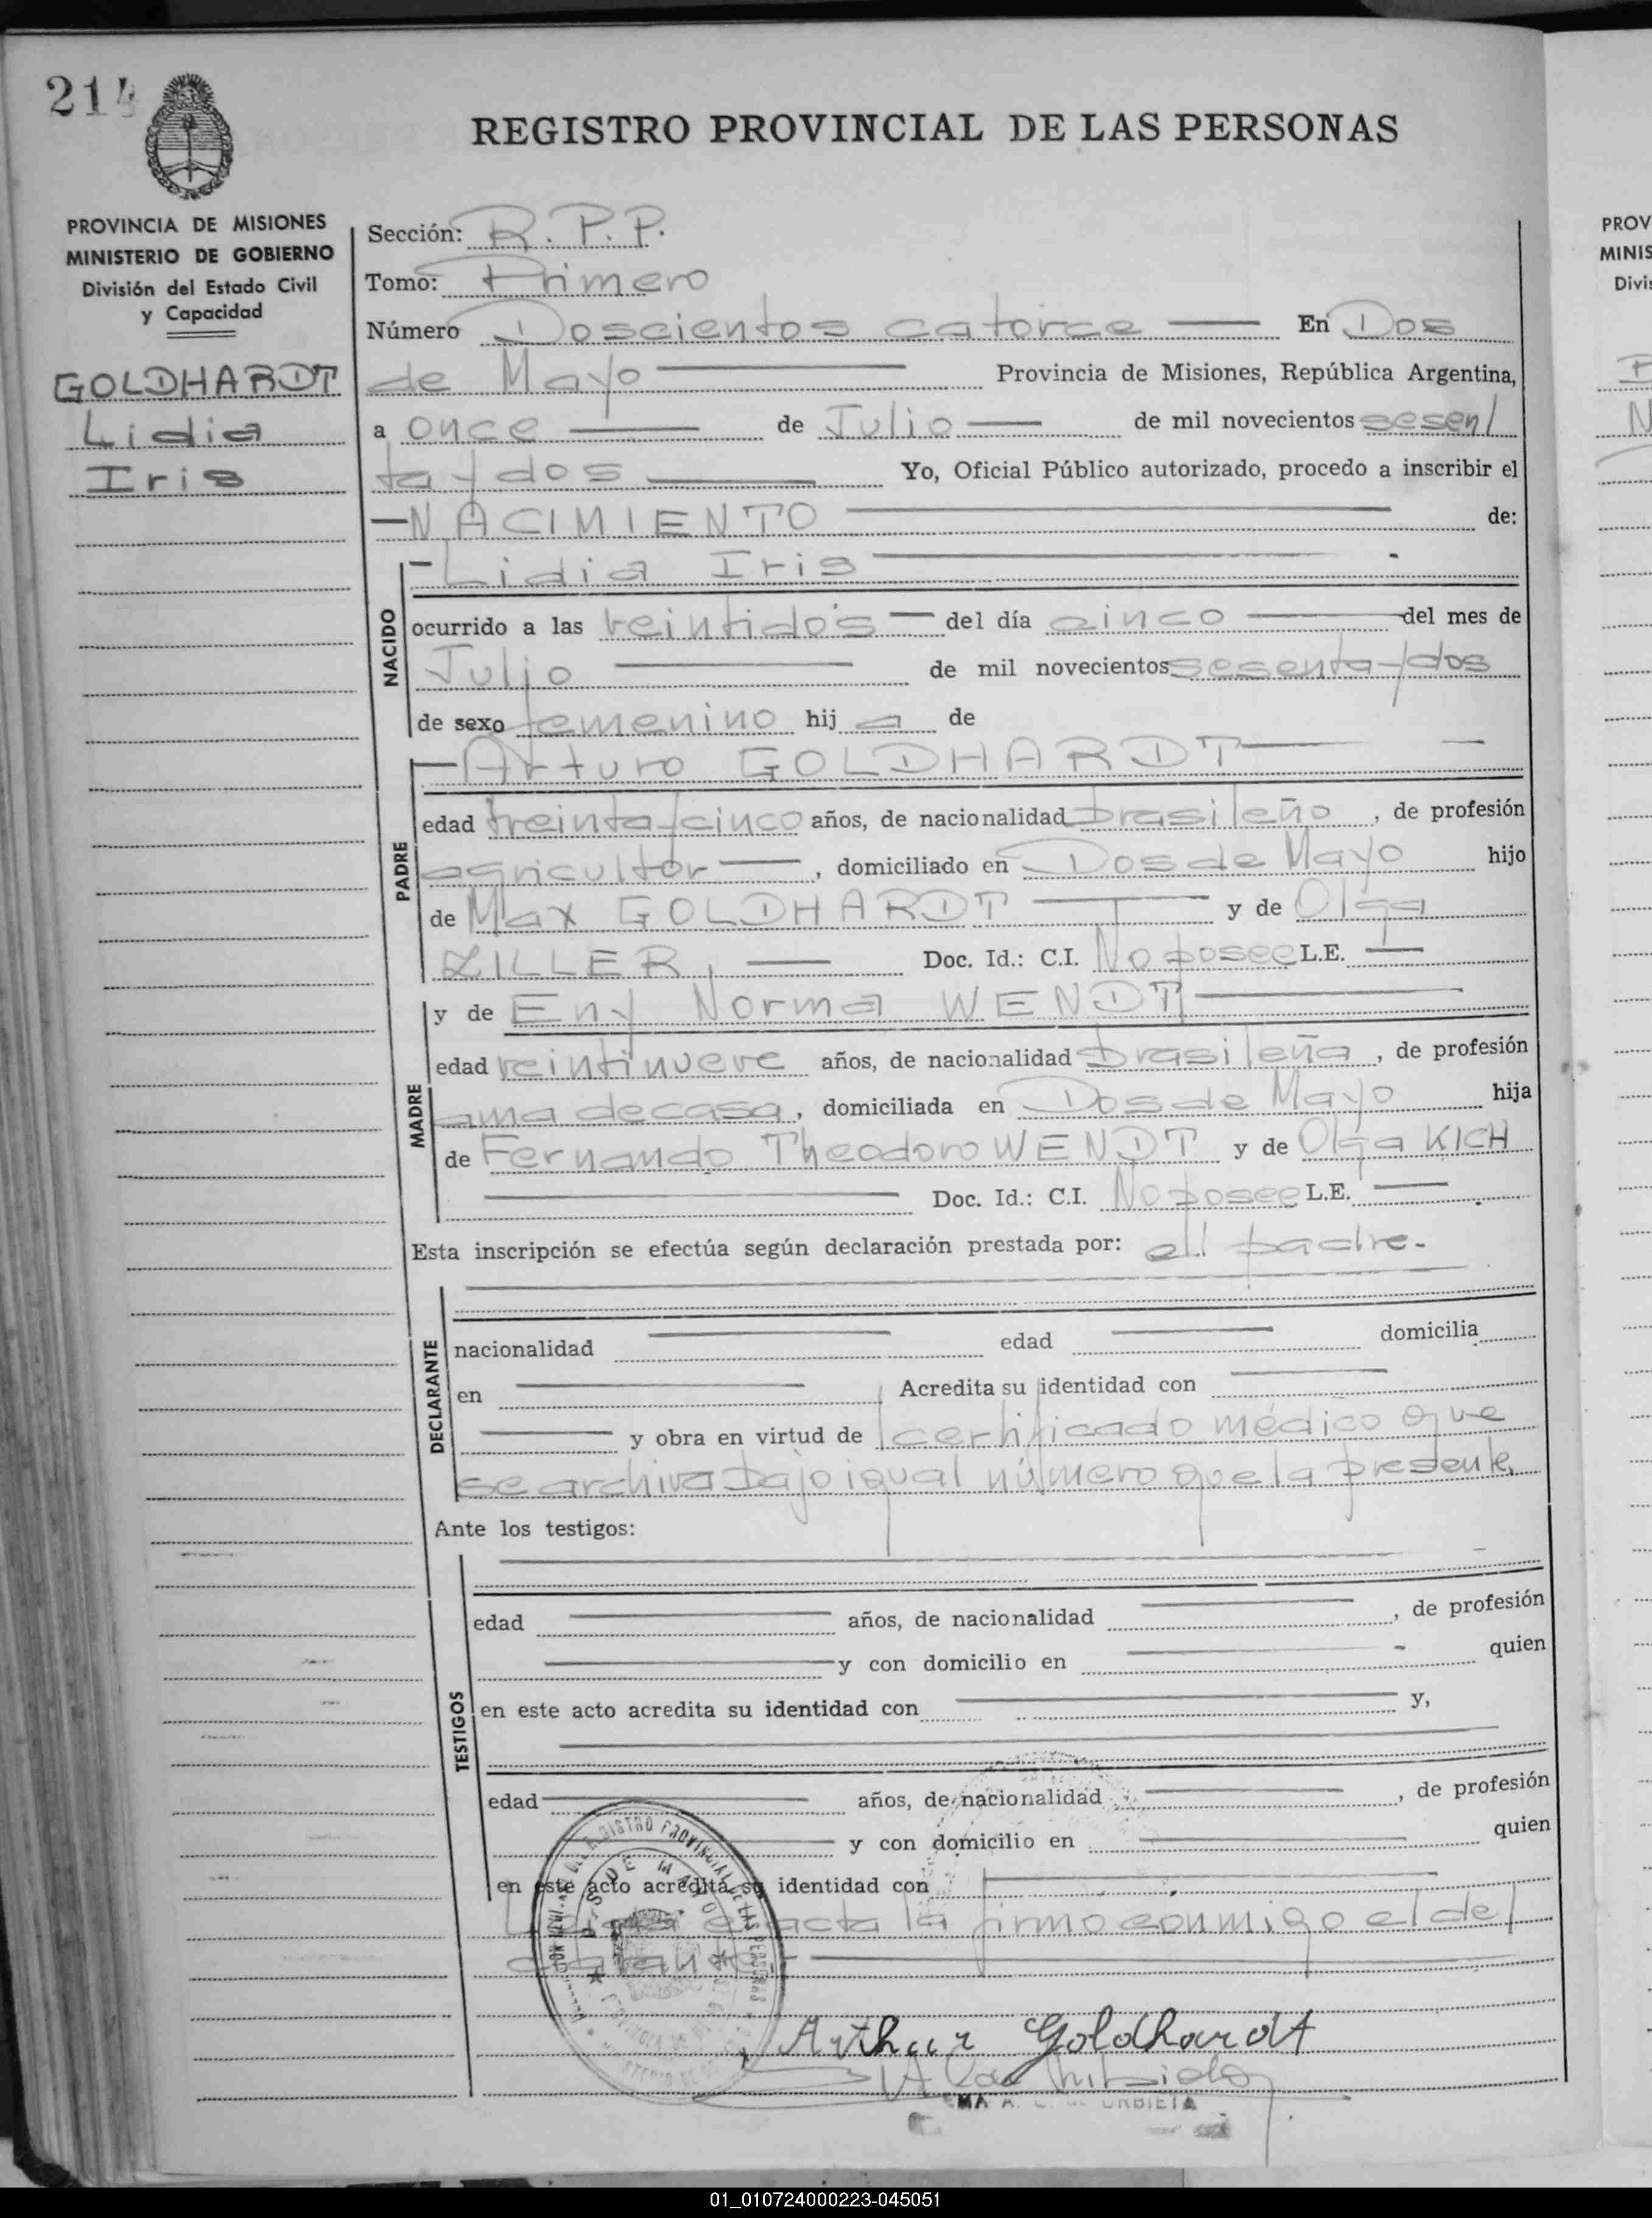 214
REGISTRO PROVINCIAL DE LAS PERSONAS
PROVINCIA DE MISIONES
MINISTERIO DE GOBIERNO
División del Estado Civil
y Capacidad
GOLDHARDT
Lidia
Iris
Sección: R. P. P.
Tomo: Primero
Número Doscientos catorce En Dos
de Mayo Provincia de Misiones, República Argentina,
a once de Julio de mil novecientos sesen
ta y dos Yo, Oficial Público autorizado, procedo a inscribir el
NACIMIENTO de:
NACIDO
Lidia Iris
ocurrido a las veintidós del día cinco del mes de
Julio de mil novecientos sesenta y dos
de sexo femenino hij a de
PADRE
Arturo GOLDHARDT
edad treinta y cinco años, de nacionalidad brasileño, de profesión
agricultor, domiciliado en Dos de Mayo hijo
de Max GOLDHARDT y de Olga
ZILLER, Doc. Id.: C.I. No posee L.E.
MADRE
y de Eny Norma WENDT
edad veintinueve años, de nacionalidad brasileña, de profesión
ama de casa, domiciliada en Dos de Mayo hija
de Fernando Theodoro WENDT y de Olga KICH
Doc. Id.: C.I. No posee L.E.
Esta inscripción se efectúa según declaración prestada por: el padre.
DECLARANTE
nacionalidad edad domicilia
en Acredita su identidad con
y obra en virtud de certificado médico que
se archiva bajo igual número que la presente,
Ante los testigos:
TESTIGOS
edad años, de nacionalidad , de profesión
y con domicilio en quien
en este acto acredita su identidad con y,
edad años, de nacionalidad , de profesión
y con domicilio en quien
en este acto acredita su identidad con
acta la firmo conmigo el de
Arthur Goldhardt
URBIETA
PROV
MINIS
Divi
01_010724000223-045051